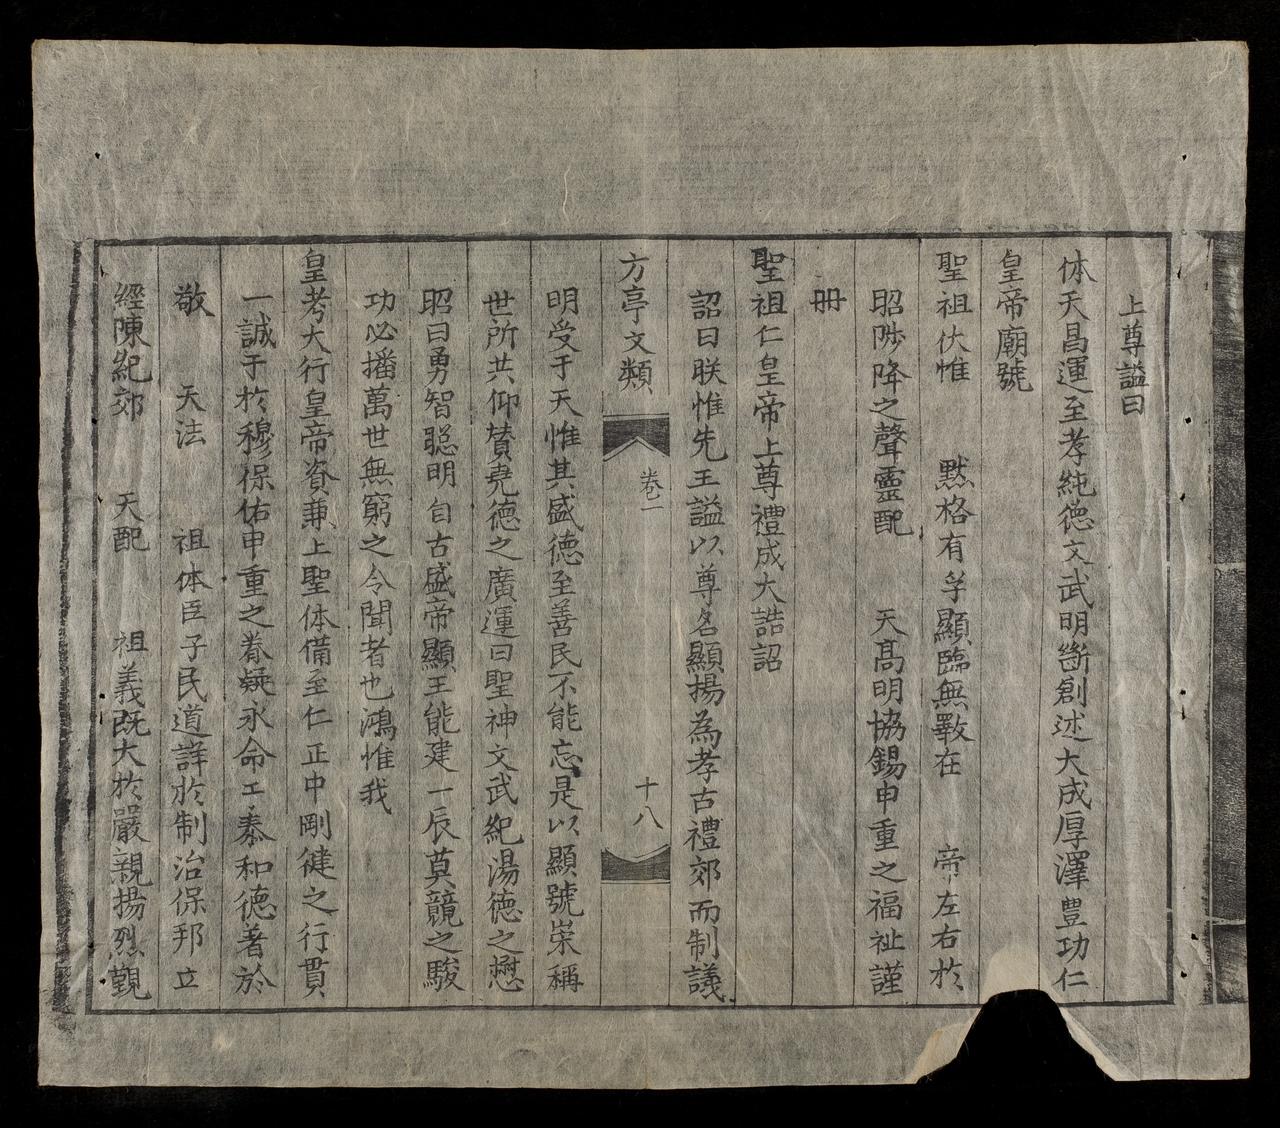 上尊謚曰
体天昌運至孝純徳文武明斷創述大成厚澤豊功仁
皇帝廟號
聖祖伏惟　黙格有孚顯臨無斁在　帝左右於
昭陟降之聲靈配　天髙明協錫申重之福祉謹
冊
聖祖仁皇帝上尊禮成大誥詔
詔曰朕惟先王謚以尊名顯揚為孝古禮郊而制議
方亭文類　卷一　十八
明受于天惟其盛徳至善民不能忘是以顯號崇稱
世所共仰賛堯徳之廣運曰聖神文武紀湯徳之懋
昭曰勇智聡明自古盛帝顯王能建一辰莫競之駿
功必播萬世無窮之令聞者也鴻惟我
皇考大行皇帝資兼上聖体備至仁正中剛健之行貫
一誠于於穆保佑申重之眷凝永命工泰和徳著於
敬　天法　祖体臣子民道詳於制治保邦立
經陳紀郊　天配　祖義既大於嚴親揚烈覲